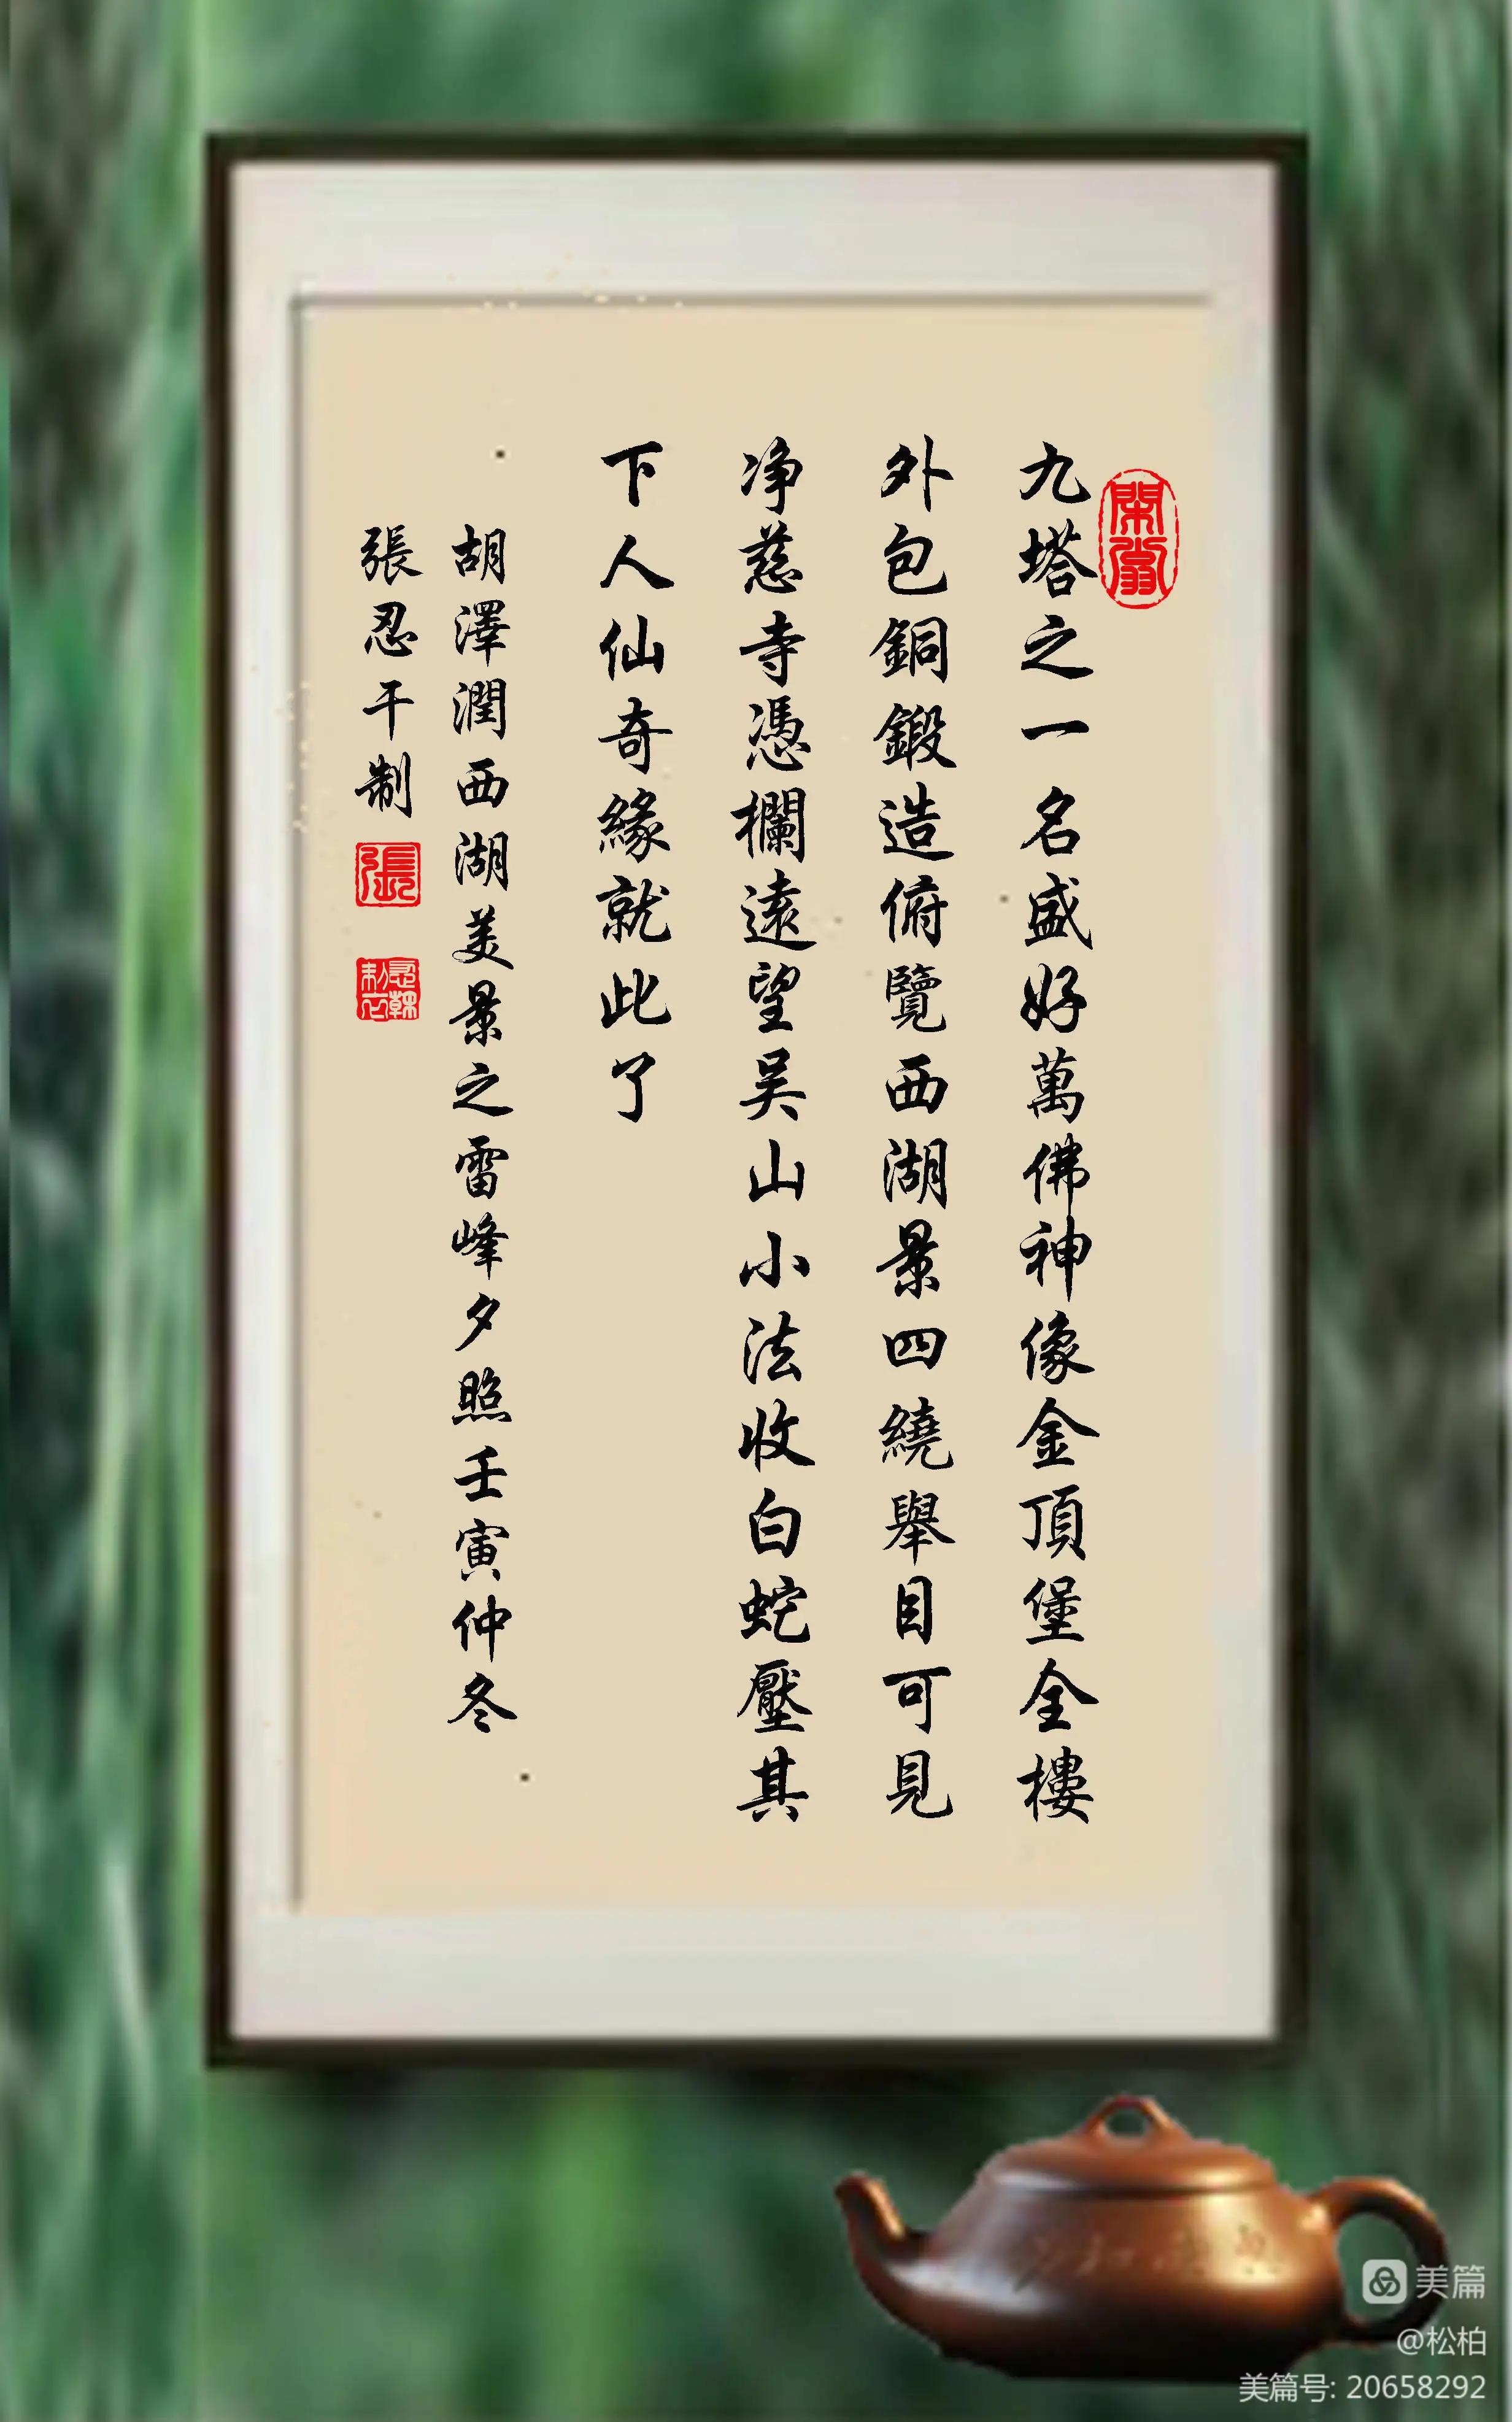 九塔之一名盛好萬佛神像金頂堡全樓
外包銅鍛造俯覽西湖景四繞舉目可見
净慈寺憑欄遠望吴山小法收白蛇壓其
下人仙奇緣就此了
胡澤潤西湖美景之雷峰夕照壬寅仲冬
張忍干制
張
美篇
@松柏
美篇号: 20658292